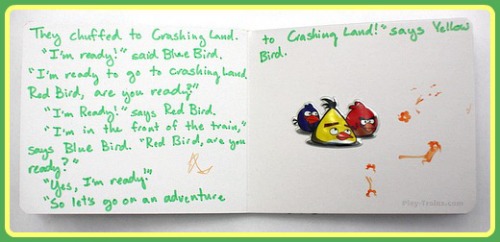 They chuffed to Crashing Land.
"I'm ready!" said Blue Bird.
"I'm ready to go to Crashing Land.
Red Bird, are you ready?"
"I'm Ready!" says Red Bird.
"I'm in the front of the train,"
says Blue Bird. "Red Bird, are you
ready?"
"Yes, I'm ready."
"So let's go on an adventure
to Crashing Land!" says Yellow
Bird.
Play-Trains.com